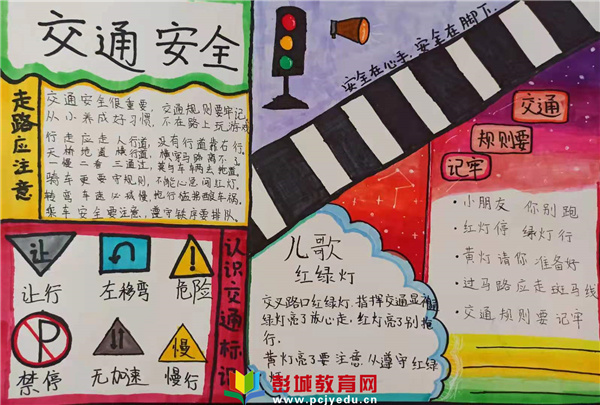 交通安全
安全在心手,安全在脚下.
走路应注意
交通安全很重要,交通规则要牢记,
从小养成好习惯,不在路上玩游戏
行走应走人行道,没有行道靠右行.
天桥地道横行道,横穿马路离不了.
一慢二看三通过,莫与车辆去抢道.
骑车更要守规则,不能心急闯红灯.
乘车安全要注意,遵守秩序要排队.
让
让行
左移弯
危险
禁停
无加速
慢
慢行
认识交通标识
儿歌
红绿灯
交叉路口红绿灯.指挥交通显神
绿灯亮了放心走.红灯亮了别抢
行.
黄灯亮了要注意.从遵守红绿
交通
规则要
记牢
·小朋友 你别跑
·红灯停 绿灯行
·黄灯请你准备好
·过马路应走斑马线
·交通规则要记牢
彭城教育网
www.pcjyedu.cn